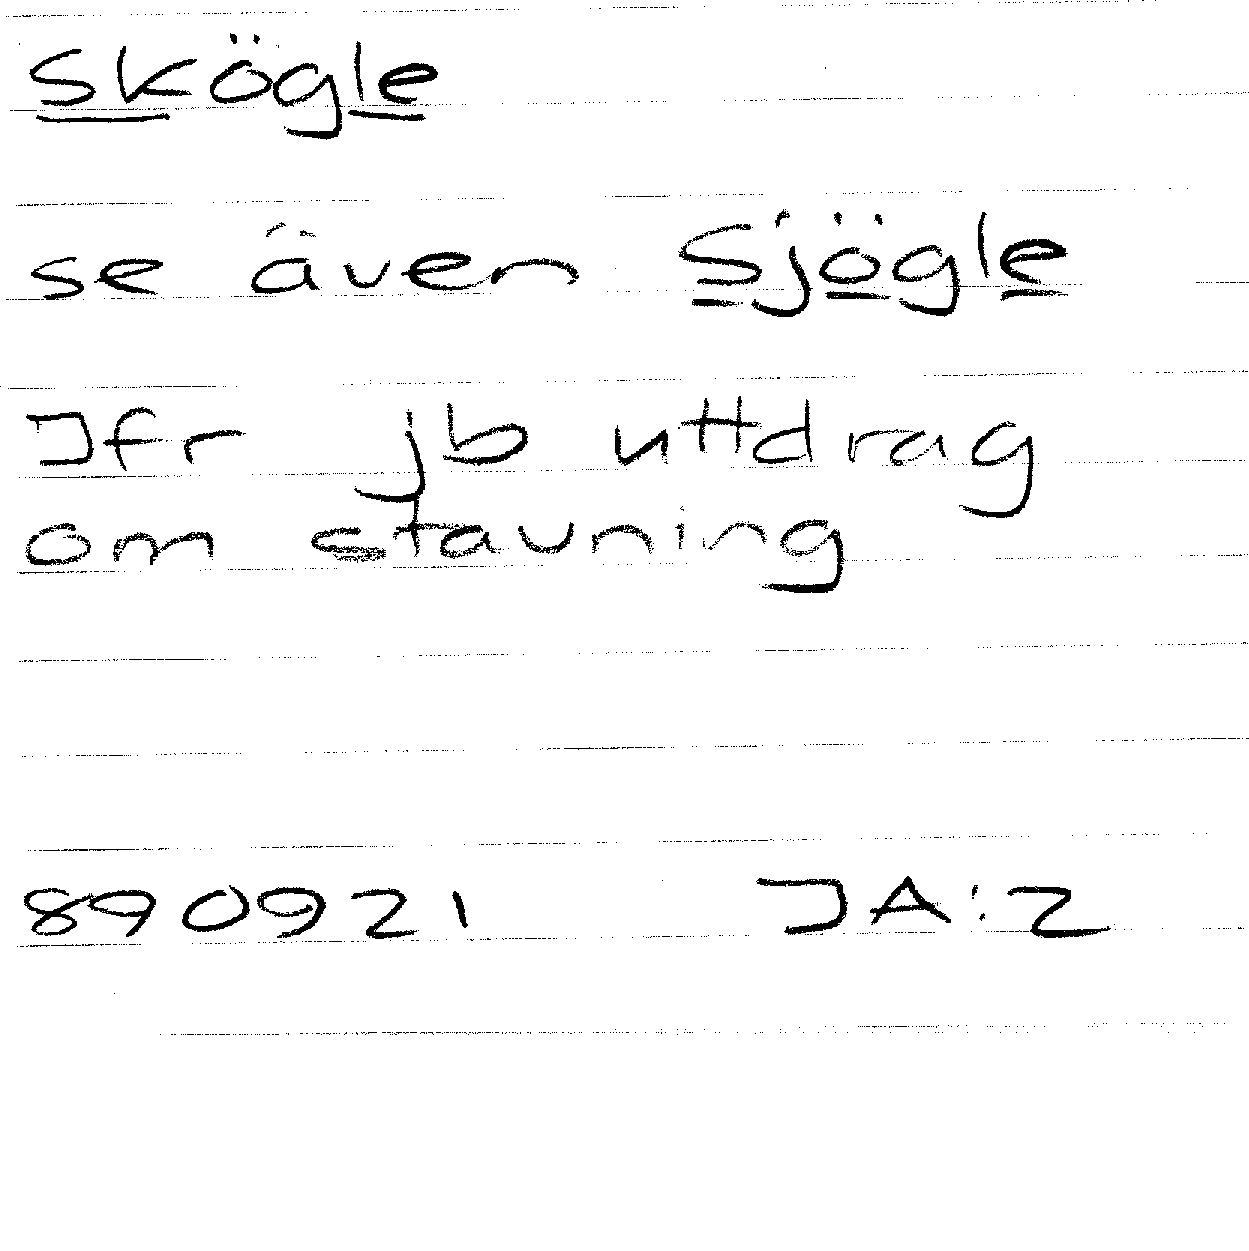 Skögle
se även Sjögle
Jfr jb uttdrag
om stavning
890921 JA:2